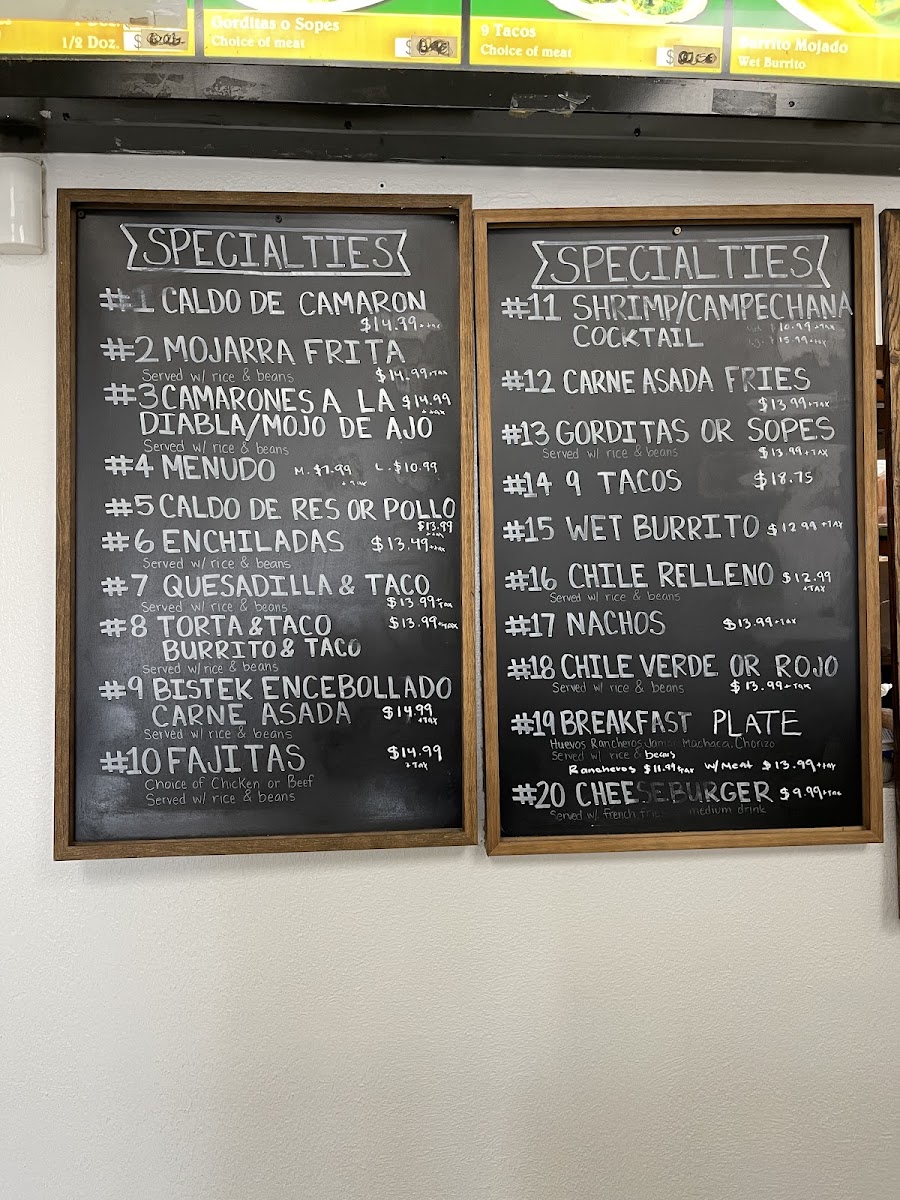 1/2 Doz. $
Gorditas o Sopes
Choice of meat $
9 Tacos
Choice of meat $
Burrito Mojado
Wet Burrito
SPECIALTIES
#1 CALDO DE CAMARON
$14.99 + tax
#2 MOJARRA FRITA
Served w/ rice & beans $14.99 + TAX
#3 CAMARONES A LA $14.99
+ tax
DIABLA/MOJO DE AJO
Served w/ rice & beans
#4 MENUDO M. $7.99 L. $10.99
+ tax
#5 CALDO DE RES OR POLLO
$13.99
+ tax
#6 ENCHILADAS $13.49 + tax
Served w/ rice & beans
#7 QUESADILLA & TACO
Served w/ rice & beans $13.99 + tax
#8 TORTA & TACO $13.99 + tax
BURRITO & TACO
Served w/ rice & beans
#9 BISTEK ENCEBOLLADO
CARNE ASADA $14.99
+ TAX
Served w/ rice & beans
#10 FAJITAS $14.99
+ TAX
Choice of Chicken or Beef
Served w/ rice & beans
SPECIALTIES
#11 SHRIMP/CAMPECHANA
COCKTAIL
#12 CARNE ASADA FRIES
$13.99 + TAX
#13 GORDITAS OR SOPES
Served w/ rice & beans $13.99 + TAX
#14 9 TACOS $18.75
#15 WET BURRITO $12.99 + TAX
#16 CHILE RELLENO $12.99
+ TAX
Served w/ rice & beans
#17 NACHOS $13.99 + tax
#18 CHILE VERDE OR ROJO
Served w/ rice & beans $13.99 + Tax
#19 BREAKFAST PLATE
Huevos Rancheros, Machaca, Chorizo
Served w/ rice & beans
Rancheros $11.99 + tax w/ Meat $13.99 + tax
#20 CHEESEBURGER $9.99 + tax
Served w/ french medium drink